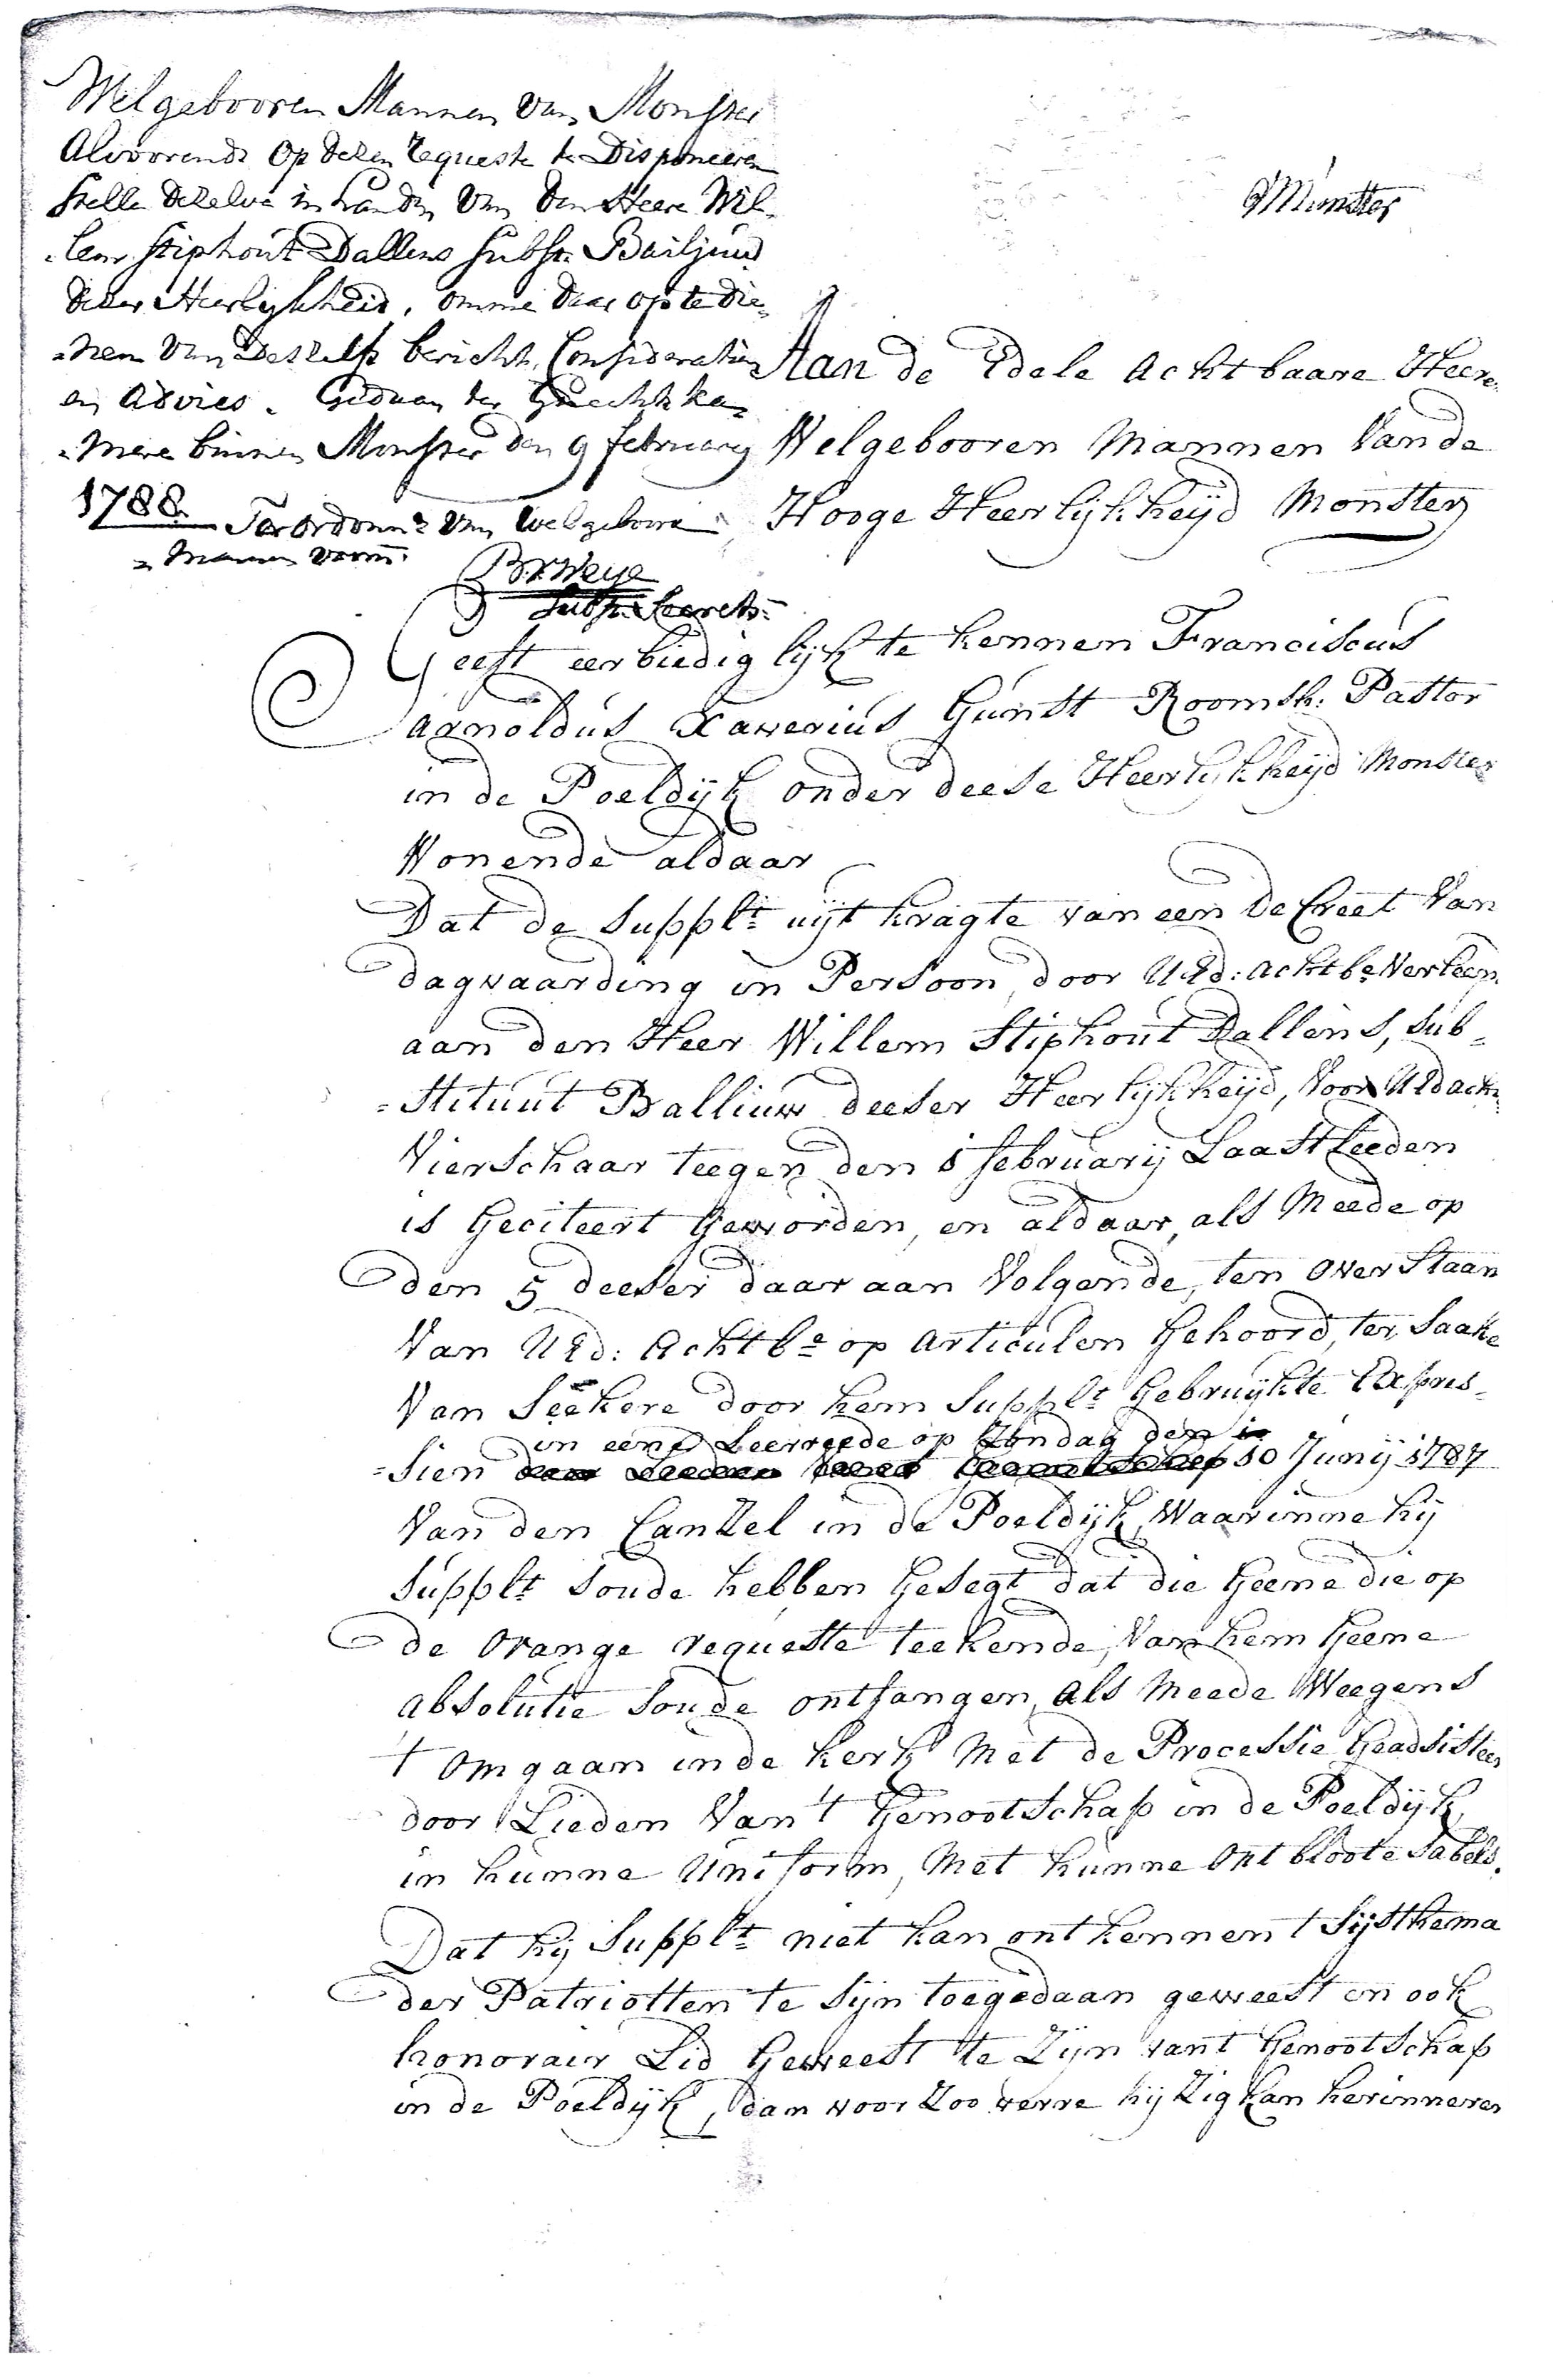 Welgebooren Mannen van Monster
Alvoorends op deesen Requeste te Disponeeren
stelle dezelve in handen van den Heere Wil-
-lem Stiphout Dallens subst. Bailjuw
deser Heerlijkheid, omme daar op te die-
-nen van deszelfs bericht, Consideratien
en advies. Gedaan ter Gerechtska-
-mere binnen Monster den 9 february
1788.
Ter ordonn:e van welgeboore
-mannen voorn:
B. v. Weye
Subst. Secrets:
Monster
Aan de Edele Achtbaare Heere
Welgebooren Mannen Van de
Hooge Heerlijkheijd Monster
Geeft eerbiedig lijk te kennen Franciscus
Arnoldus Xaverius Gunst Roomsh: Pastor
in de Poeldijk onder deese Heerlijkheijd Monster
Wonende aldaar
Dat de Supplt uijt kragte van een DeCreet Van
dagvaarding in Persoon, door UEd: Achtbe Verleen
aan den Heer Willem Stiphout Dallens, sub-
=stituut Balliuw deeser Heerlijkheijd, Voor UEd acht
Vierschaar teegen den 1 februarij Laastleeden
is Geciteert Geworden, en aldaar, als Meede op
den 5 deeser daar aan Volgende, ten over staan
Van UEd: Achtbe op Articulen Gehoord, ter Saake
Van Seekere door hem Supplt Gebruijkte Expres-
in eene Leerreede op Zondag den
=sien 10 Junij 1787
Van den Canzel in de Poeldijk, Waarinne hij
Supplt soude hebben Gesegt dat die Geene die op
de Orange requeste teekende, Van hem Geene
absolutie soude ontfangen, als Meede Weegens
't omgaan in de kerk Met de Processie Geadsisteer
door Lieden Van 't Genootschap in de Poeldijk,
in hunne Uniform, Met hunne Ontbloote Sabels.
Dat hij Supplt niet kan ontkennen t Sijsthema
der Patriotten te sijn toegedaan geweest en ook
honorair Lid Geweest te Zijn vant Genootschap
in de Poeldijk, dan voor Zoo verre hij Zig kan herinneren